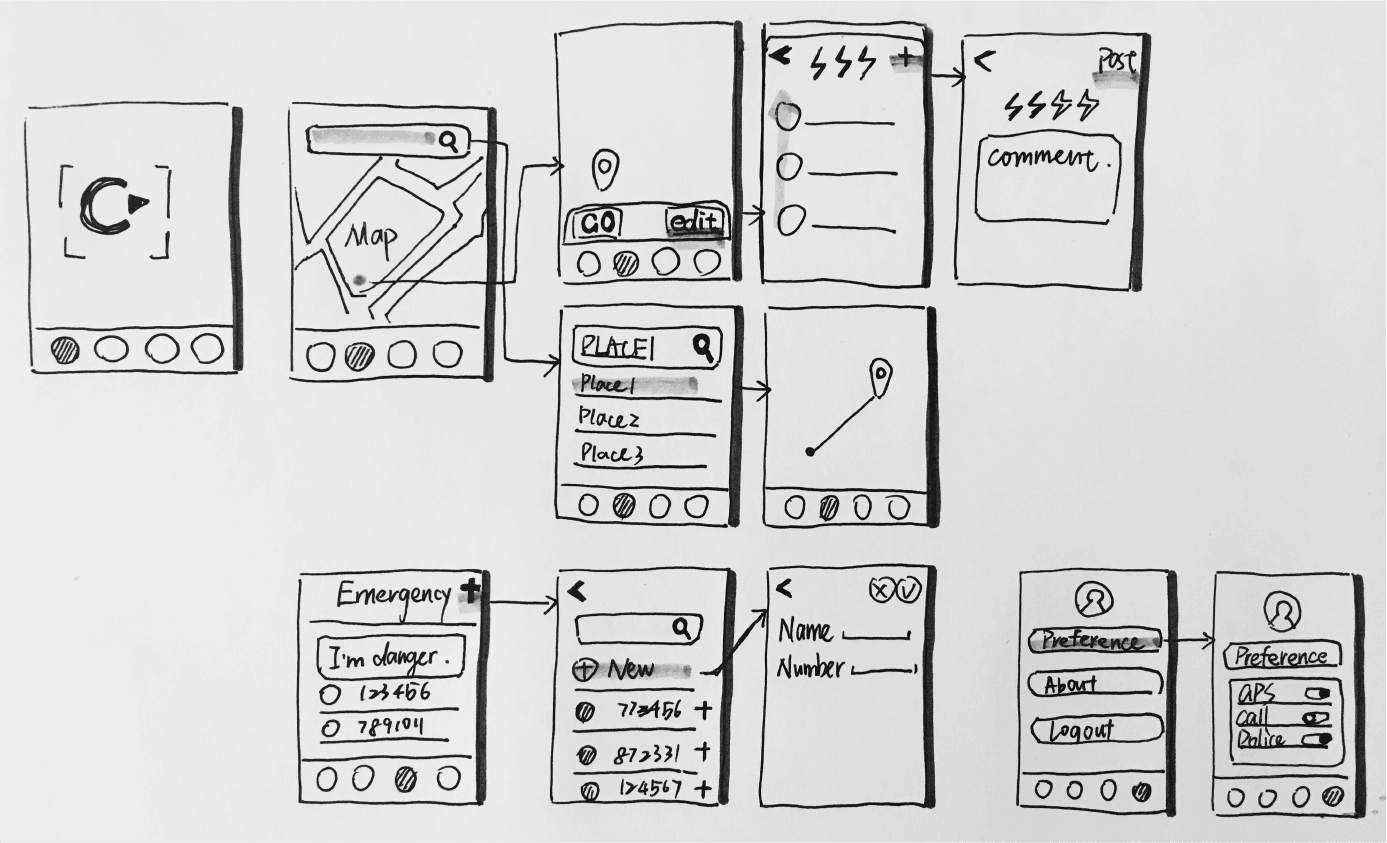 Map
GO
edit
Post
comment.
PLACE1
Place1
Place2
Place3
Emergency +
I'm danger.
123456
789104
New
773456 +
872331 +
124567 +
Name
Number
Preference
About
Logout
Preference
GPS
Call
Police